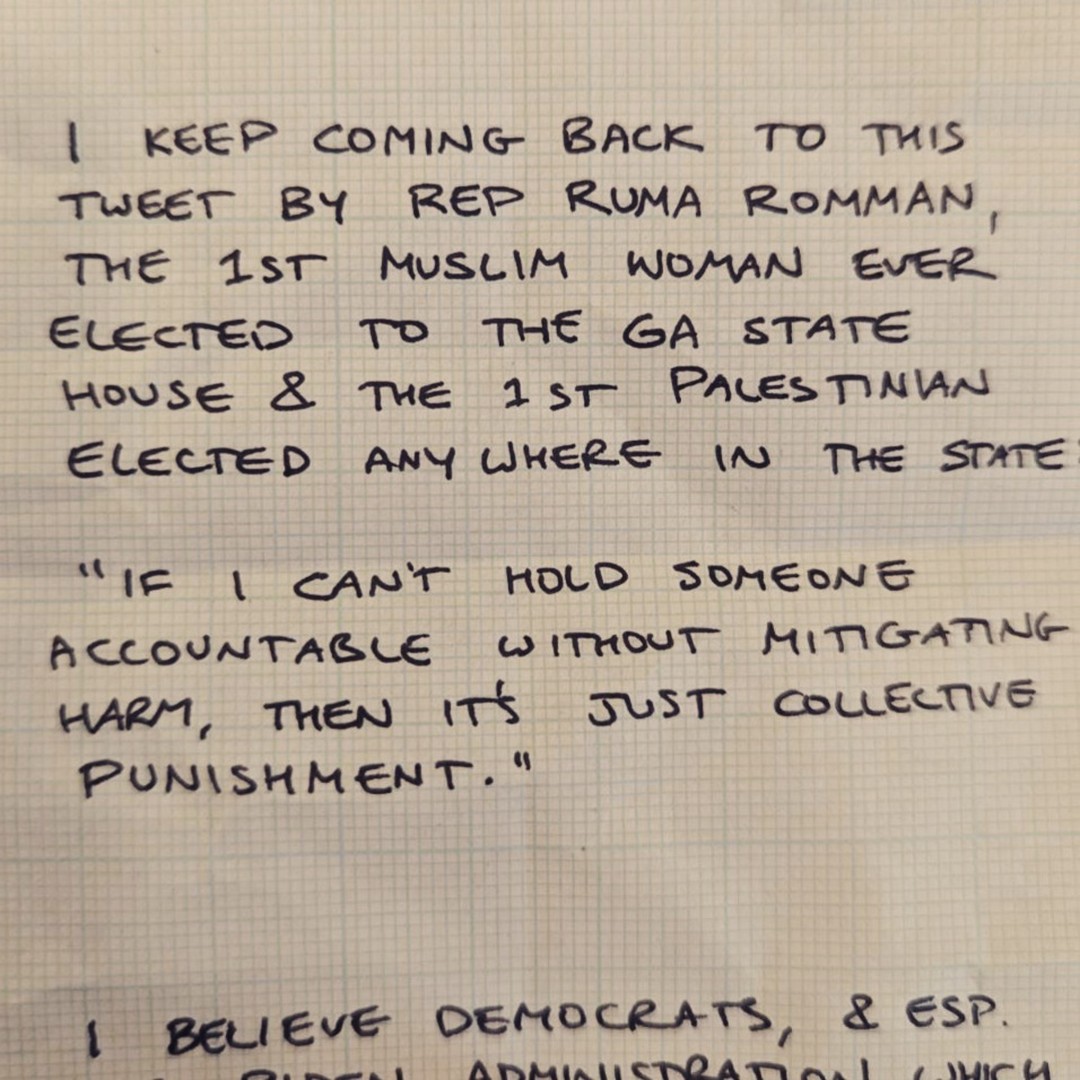 I KEEP COMING BACK TO THIS
TWEET BY REP RUMA ROMMAN,
THE 1ST MUSLIM WOMAN EVER
ELECTED TO THE GA STATE
HOUSE & THE 1ST PALESTINIAN
ELECTED ANYWHERE IN THE STATE:
"IF I CAN'T HOLD SOMEONE
ACCOUNTABLE WITHOUT MITIGATING
HARM, THEN IT'S JUST COLLECTIVE
PUNISHMENT."
I BELIEVE DEMOCRATS, & ESP.
BIDEN ADMINISTRATION WHICH